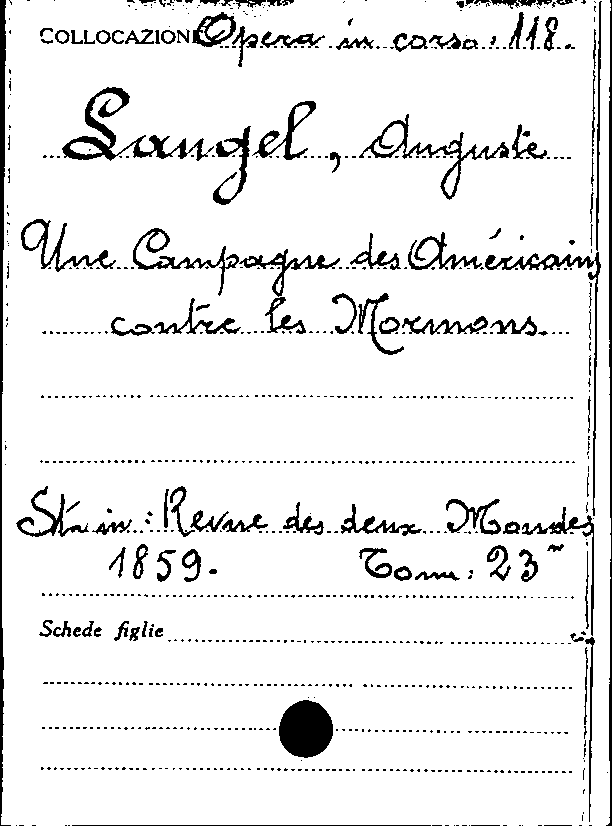 COLLOCAZIONE Opera in corso: 118.
Laugel, Auguste
Une Campagne des Américains
contre les Mormons.
Sta in: Revue des deux Mondes
1859. Tome: 23
Schede figlie